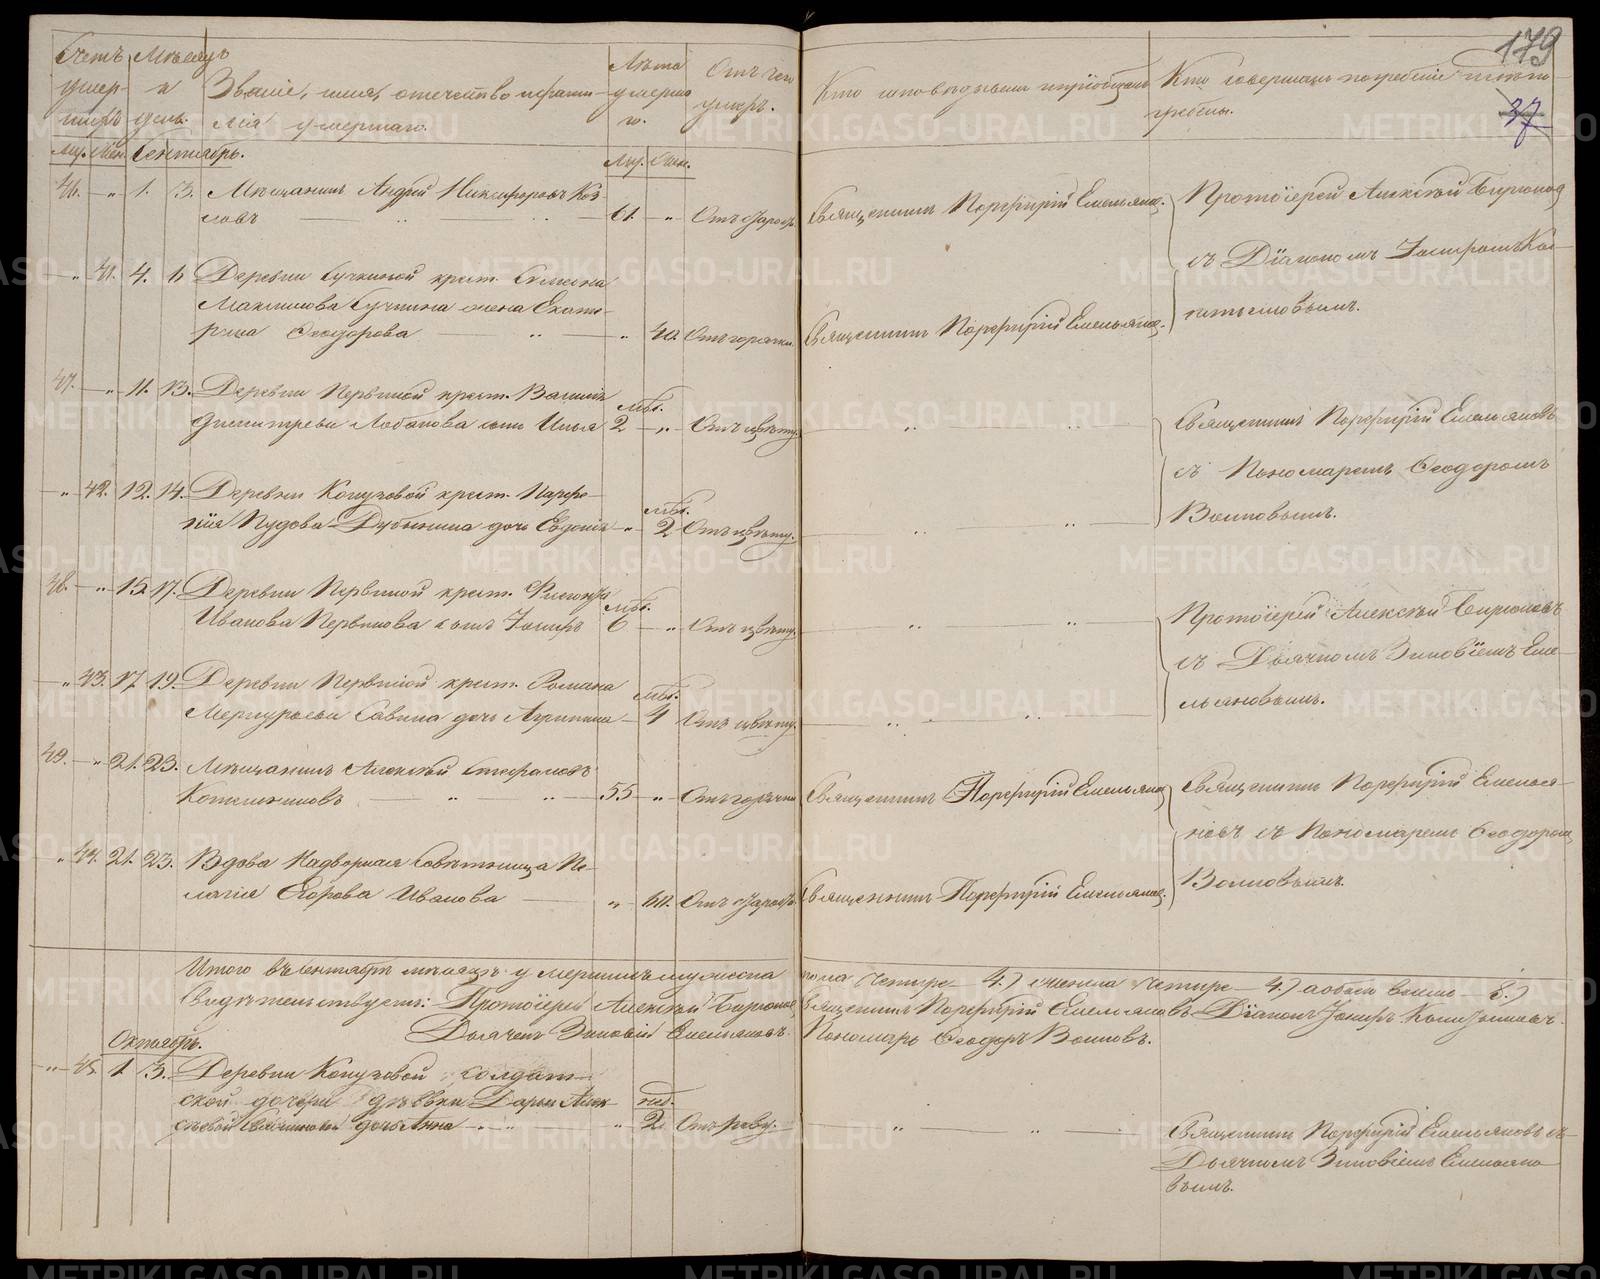 179
37
Счетъ умер-шихъ
Мѣсяцъ и день.
Званіе, имя, отечество и фами-
лія умершаго.
Лѣта умершаго.
Отъ чего умеръ.
Кто исповѣдывалъ и пріобщалъ
Кто совершалъ погребеніе и гдѣ по-
гребены.
Муж. Жен. Сентябрь.
Муж. Жен.
46. — " 1. 3. Мѣщанинъ Андрей Никифоровъ Коз-
ловъ 61. — " Отъ старос. Священникъ Порфирій Емельянов. Протоіерей Алексѣй Бирюков
съ Діакономъ
" 41. 4. 6 Деревни Сучкиной крест. Симеона
Максимова Сучкина жена Екате-
рина Ѳеодорова " 40. Отъ горячки. Священникъ Порфирій Емельянов.
47. — " 11. 13. Деревни Первиной крест. Василія
Димитріева Лобанова сынъ Илья мѣс. 2 — " Отъ цвѣту. " " Священникъ Порфирій Емельяновъ
съ Пономаремъ Ѳеодоромъ
" 42. 12. 14. Деревни Копуховой крест. Парфе-
нія Пудова Дубынина дочь Евдокія " мѣс. 2 Отъ цвѣту. " " Воиновымъ.
48. — " 15. 17. Деревни Первиной крест.
Иванова Первинова сынъ мѣс. 6 — " Отъ цвѣту. " " Протоіерей Алексѣй Бирюковъ
съ Дьячкомъ Зиновіемъ Еме-
льяновымъ.
" 43. 17. 19. Деревни Первиной крест. Романа
Меркурьева Савина дочь Агрипина мѣс. 4 Отъ цвѣту. " "
49. — " 21. 23. Мѣщанинъ Алексѣй Стефановъ
Котельниковъ " " 55 " Отъ горячки Священникъ Порфирій Емельянов Священникъ Порфирій Емелья-
новъ съ Пономаремъ Ѳеодором
Воиновымъ.
" 44. 21. 23. Вдова Надворная Совѣтница Пе-
лагія Егорова Иванова " 60. Отъ старос. Священникъ Порфирій Емельянов.
Итого въ Сентябрѣ мѣсяцѣ умершихъ мужеска пола четыре — 4.) женска четыре — 4.) а обоего восемь — 8.)
Свидѣтельствуетъ: Протоіерей Алексѣй Бирюков Священникъ Порфирій Емельяновъ Діаконъ
Дьячекъ Зиновій Емельяновъ. Пономарь Ѳеодоръ Воиновъ.
Октябрь.
" 45. 1. 3. Деревни Копуховой солдат-
ской дочери дѣвки Дарьи Алек-
сѣевой дочь Анна " нед. 2. Отъ реву. " " Священникъ Порфирій Емельяновъ съ
Дьячкомъ Зиновіемъ Емельяно-
вымъ.
METRIKI.GASO-URAL.RU